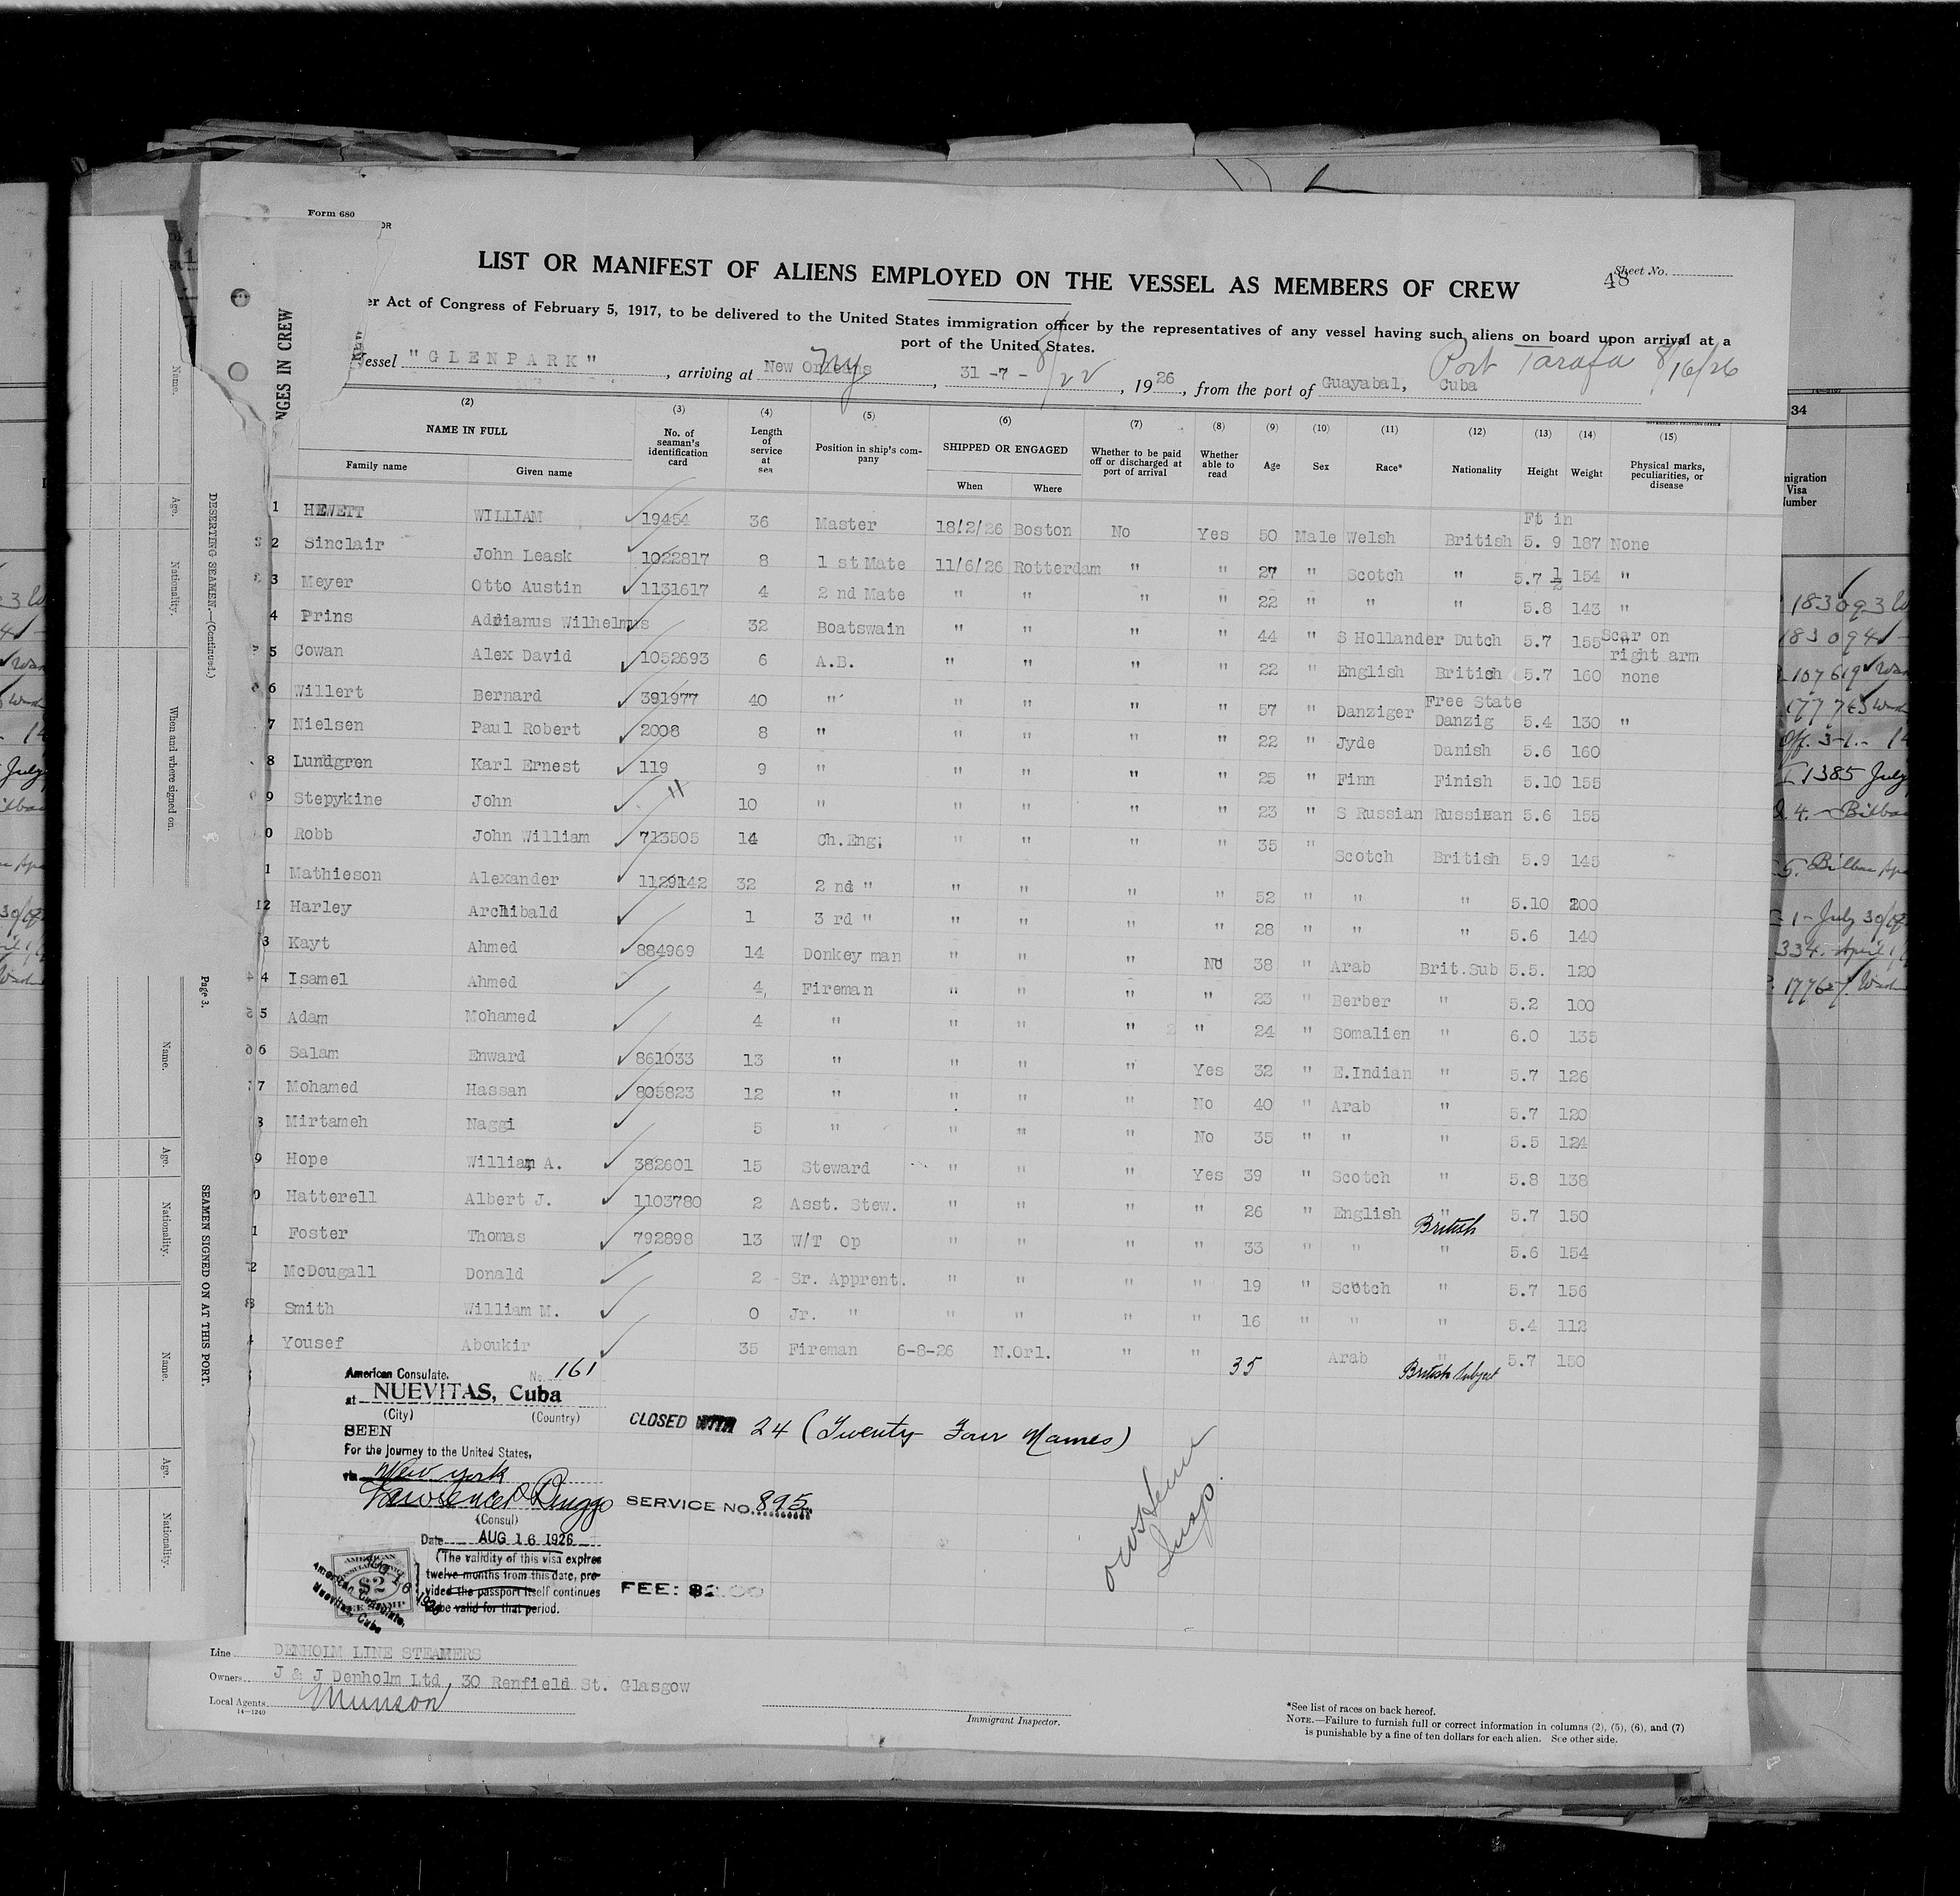 Form 680
LIST OR MANIFEST OF ALIENS EMPLOYED ON THE VESSEL AS MEMBERS OF CREW
Sheet No.
48
er Act of Congress of February 5, 1917, to be delivered to the United States immigration officer by the representatives of any vessel having such aliens on board upon arrival at a
port of the United States.
Vessel "GLENPARK", arriving at New Orleans NY, 31-7- 8/22, 1926, from the port of Guayabal, Cuba Port Tarafa 8/16/26
NGES IN CREW
(2) (3) (4) (5) (6) (7) (8) (9) (10) (11) (12) (13) (14) (15)
NAME IN FULL No. of seaman's identification card Length of service at sea Position in ship's company SHIPPED OR ENGAGED Whether to be paid off or discharged at port of arrival Whether able to read Age Sex Race* Nationality Height Weight Physical marks, peculiarities, or disease
Family name Given name When Where
Ft in
1 HEWETT WILLIAM 19454 36 Master 18/2/26 Boston No Yes 50 Male Welsh British 5. 9 187 None
2 Sinclair John Leask 1022817 8 1 st Mate 11/6/26 Rotterdam " " 27 " Scotch " 5.7 1/2 154 "
3 Meyer Otto Austin 1131617 4 2 nd Mate " " " " 22 " " " 5.8 143 "
4 Prins Adrianus Wilhelmus 32 Boatswain " " " " 44 " S Hollander Dutch 5.7 155 Scar on right arm
5 Cowan Alex David 1052693 6 A.B. " " " " 22 " English British 5.7 160 none
6 Willert Bernard 391977 40 " " " " " 57 " Danziger Free State Danzig 5.4 130 "
7 Nielsen Paul Robert 2008 8 " " " " " 22 " Jyde Danish 5.6 160
8 Lundgren Karl Ernest 119 9 " " " " " 25 " Finn Finish 5.10 155
9 Stepykine John " 10 " " " " " 23 " S Russian Russian 5.6 155
0 Robb John William 713505 14 Ch.Eng. " " " " 35 " Scotch British 5.9 145
1 Mathieson Alexander 1129142 32 2 nd " " " " " 52 " " " 5.10 200
12 Harley Archibald 1 3 rd " " " " " 28 " " " 5.6 140
3 Kayt Ahmed 884969 14 Donkey man " " " No 38 " Arab Brit.Sub 5.5. 120
4 Isamel Ahmed 4, Fireman " " " " 23 " Berber " 5.2 100
5 Adam Mohamed 4 " " " " " 24 " Somalien " 6.0 135
6 Salam Enward 861033 13 " " " " Yes 32 " E.Indian " 5.7 126
7 Mohamed Hassan 805823 12 " " " " No 40 " Arab " 5.7 120
8 Mirtameh Naggi 5 " " " " No 35 " " " 5.5 124
9 Hope William A. 382601 15 Steward " " " Yes 39 " Scotch " 5.8 138
0 Hatterell Albert J. 1103780 2 Asst. Stew. " " " " 26 " English " 5.7 150
1 Foster Thomas 792898 13 W/T Op " " " " 33 " " British " 5.6 154
2 McDougall Donald 2 Sr. Apprent. " " " " 19 " Scotch " 5.7 156
3 Smith William M. 0 Jr. " " " " " 16 " " " 5.4 112
4 Yousef Aboukir 35 Fireman 6-8-26 N.Orl. " " 35 Arab " British Subject 5.7 150
American Consulate, No. 161
at NUEVITAS, Cuba
(City) (Country)
SEEN
For the journey to the United States,
via New York
CLOSED WITH 24 (Twenty Four Names)
(Consul)
SERVICE NO. 895
Date AUG 16 1926
(The validity of this visa expires
twelve months from this date, pro-
vided the passport itself continues
to be valid for that period.
FEE: $2.00
AMERICAN
$2
FEE STAMP
American Consulate,
Nuevitas, Cuba
Insp.
Line DENHOLM LINE STEAMERS
Owners J & J Denholm Ltd, 30 Renfield St. Glasgow
Local Agents Munson
14—1240
Immigrant Inspector.
*See list of races on back hereof.
NOTE.—Failure to furnish full or correct information in columns (2), (5), (6), and (7)
is punishable by a fine of ten dollars for each alien. See other side.
DESERTING SEAMEN.—(Continued.)
Page 3.
SEAMEN SIGNED ON AT THIS PORT.
Name.
Age.
Nationality.
When and where signed on.
Name.
Age.
Nationality.
Name.
Age.
Nationality.
34
migration
Visa
Number
183093
183094
107619
1385 July
4. Bilbao
5. Bilbao
1 - July 30
334. April